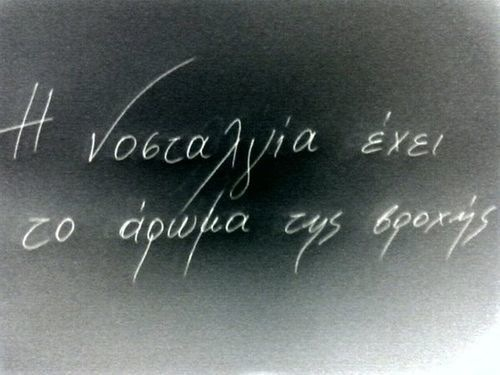 Η νοσταλγία έχει
το άρωμα της βροχής